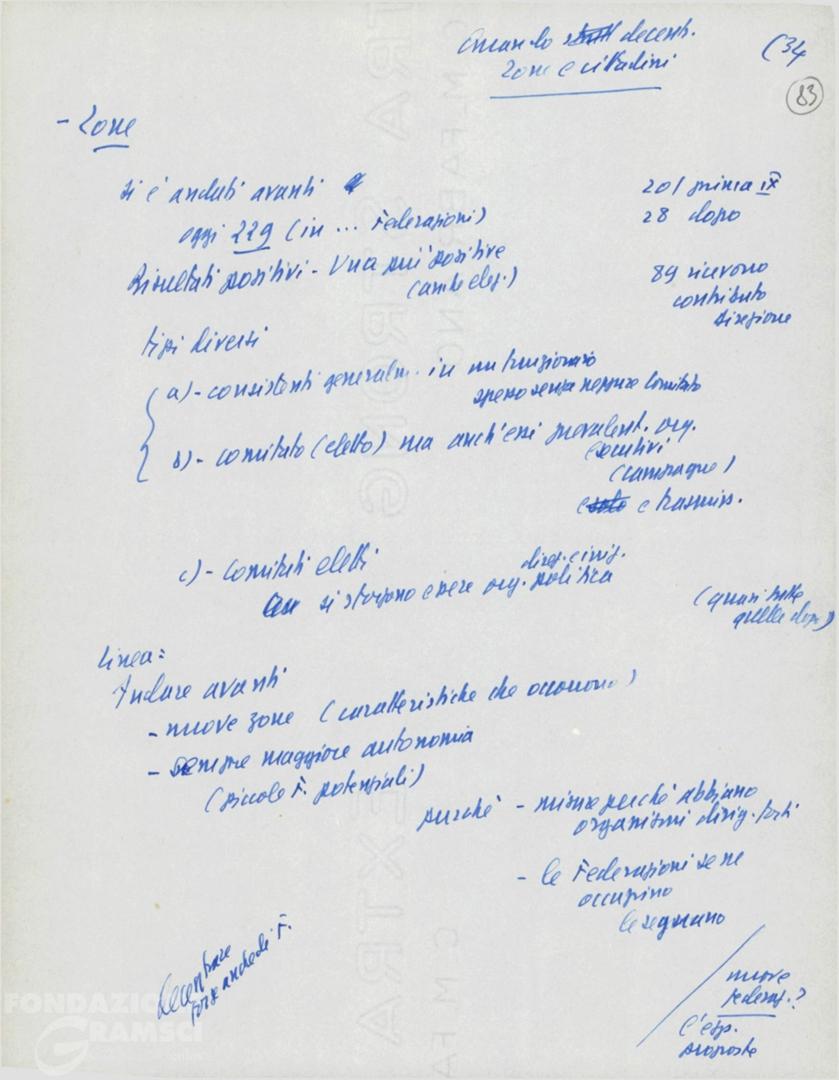 decent.
zone e cittadini
(34
83
- Zone
si è andati avanti
201 prima IX
oggi 229 (in ... Federazioni)
28 dopo
Risultati positivi - Una più positive
(anche elez.)
89 ricevono
contributo
direzione
tipi diversi
a) - consistenti generalm. in un funzionario
spesso senza neppure Comitato
b) - comitato (eletto) ma anch'essi prevalent. org.
esecutivi
(campagne)
e trasmiss.
c) - comitati eletti
si sforzano essere org. politica
(quasi tutte
quelle dopo)
Linea:
Andare avanti
- nuove zone (caratteristiche che occorrono)
- sempre maggiore autonomia
(piccole F. potenziali)
purché - misure perché abbiano
organismi dirig. forti
- le Federazioni se ne
occupino
le seguano
Decentrare
forze anche di F.
nuove
Federaz.?
proposte
FONDAZIONE
GRAMSCI
EXTRA STRONG
EXTRA